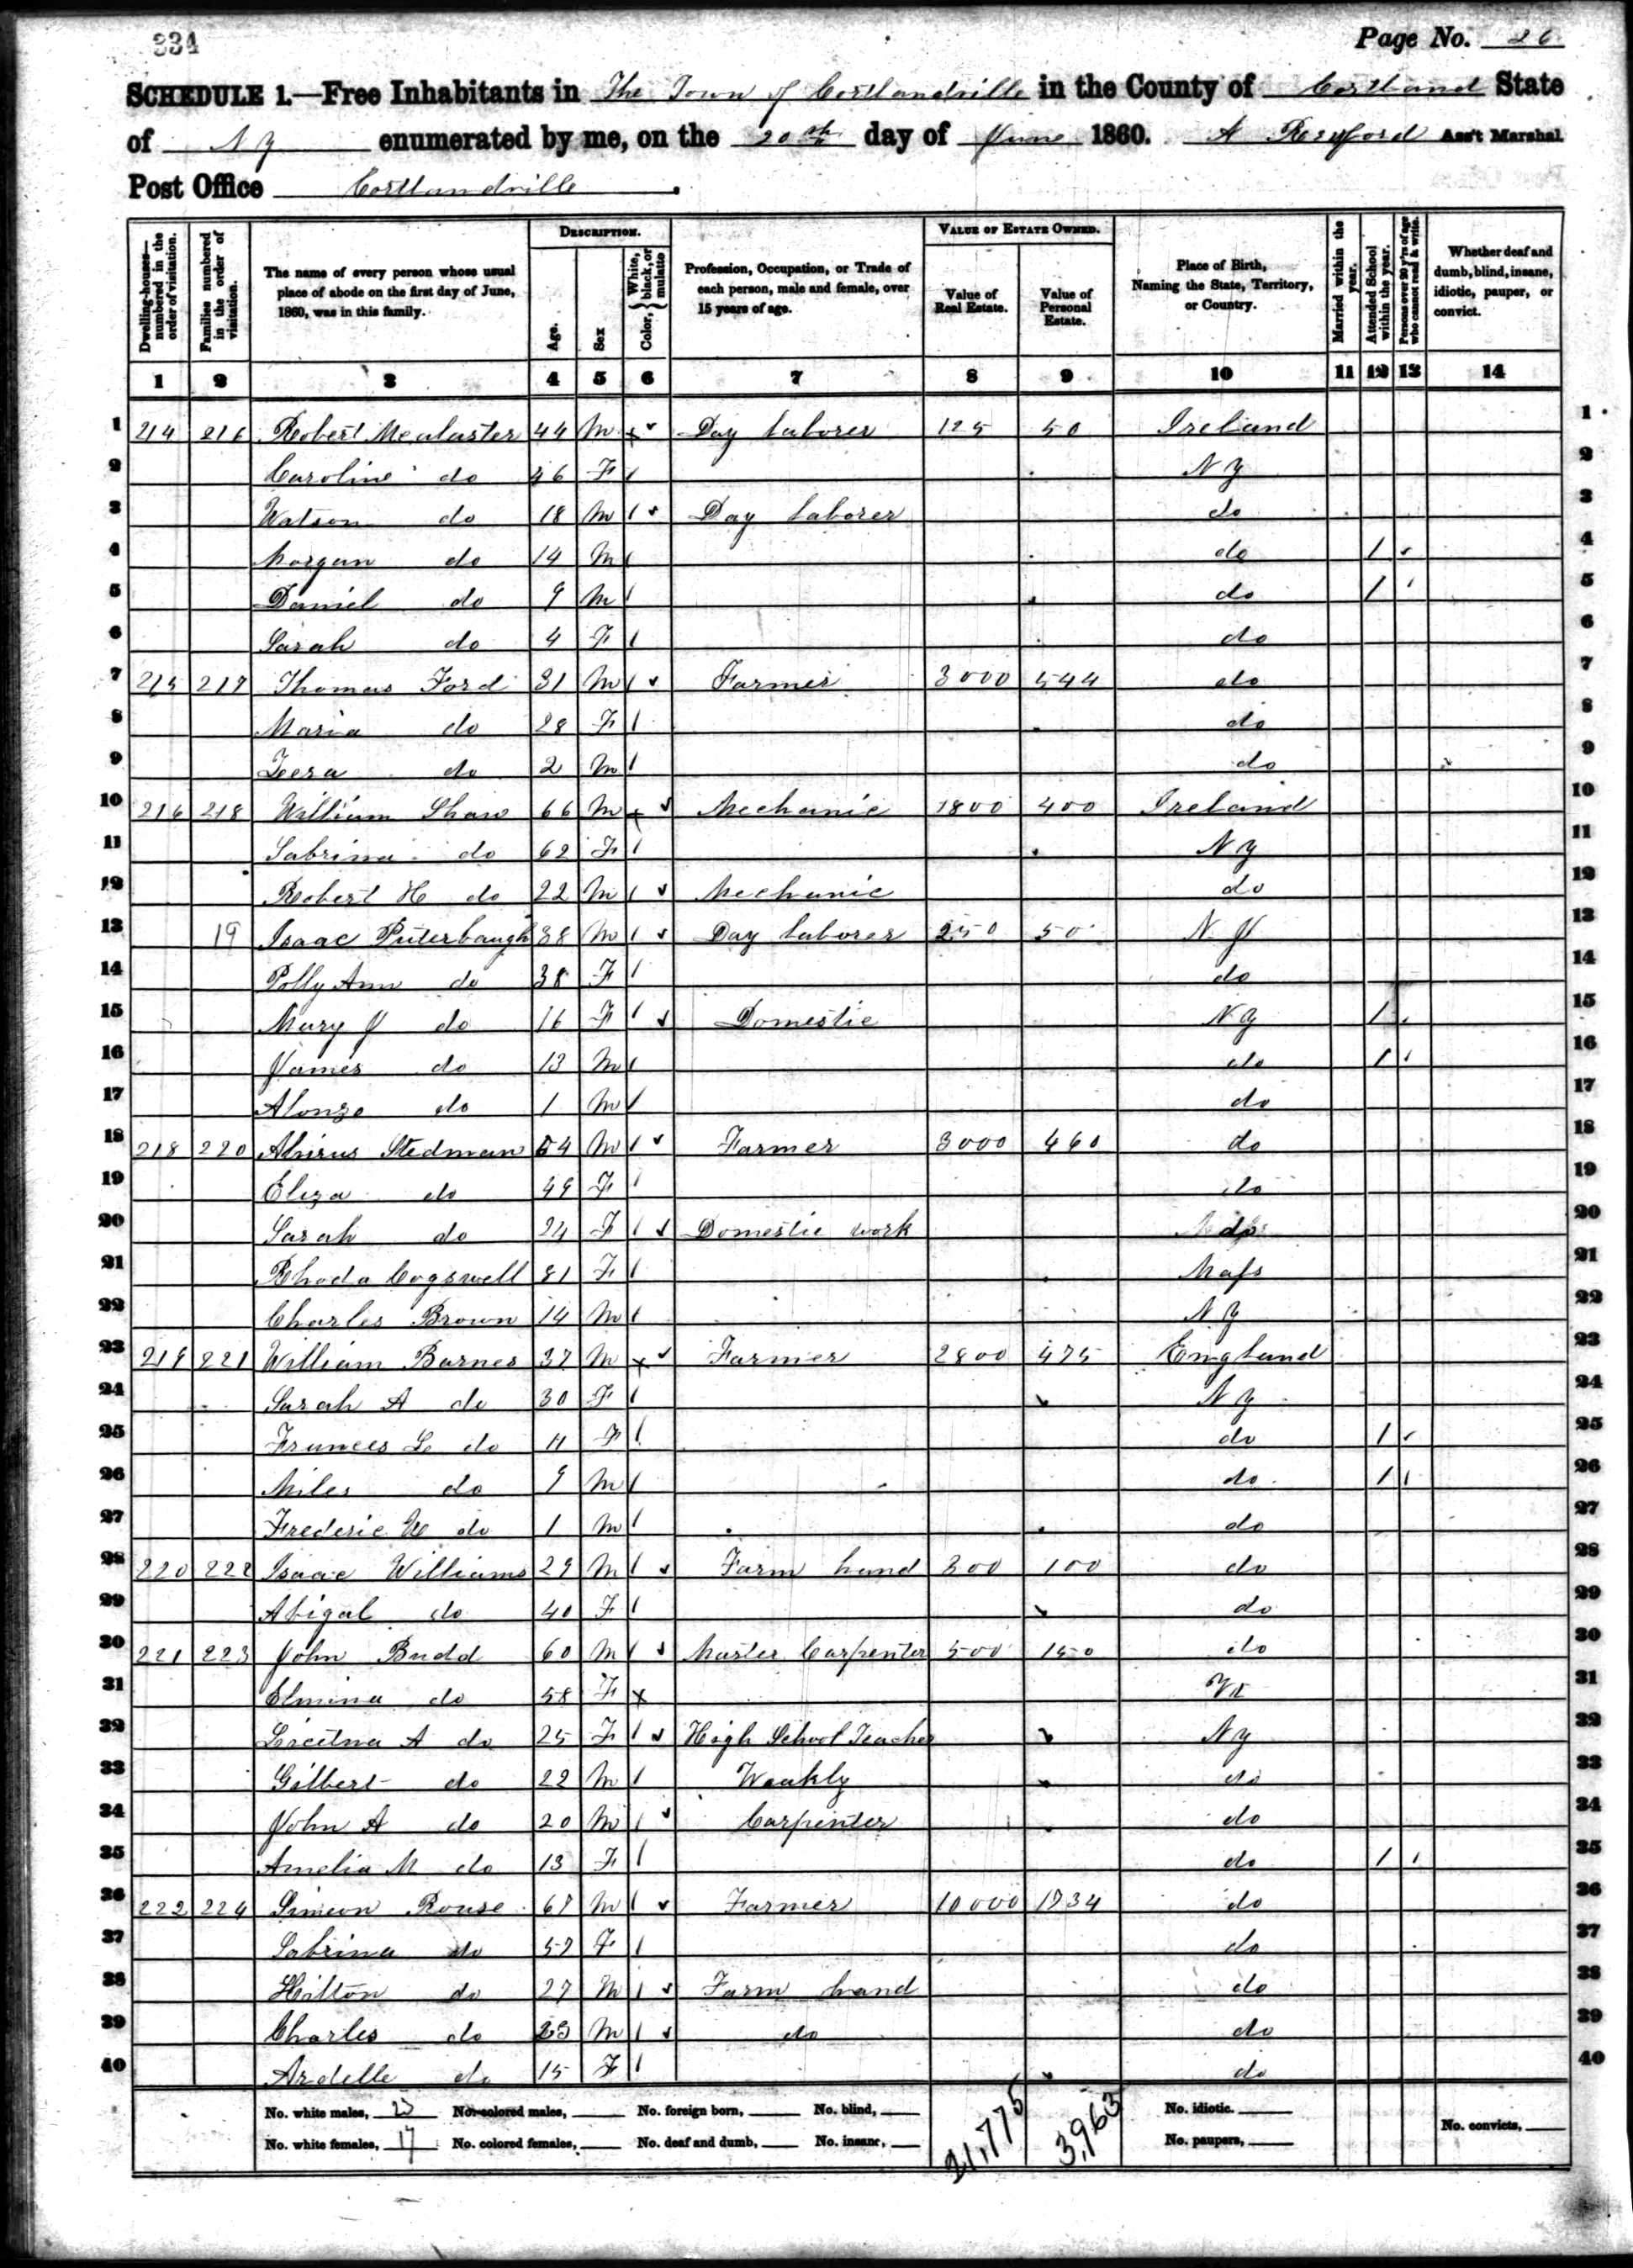 334
Page No. 26
SCHEDULE 1.—Free Inhabitants in The Town of Cortlandville in the County of Cortland State
of N Y enumerated by me, on the 20th day of June 1860. A Rexford Ass't Marshal
Post Office Cortlandville.
Dwelling-houses—numbered in the order of visitation.
Families numbered in the order of visitation.
The name of every person whose usual place of abode on the first day of June, 1860, was in this family.
DESCRIPTION.
Age.
Sex
Color, { White, black, or mulatto
Profession, Occupation, or Trade of each person, male and female, over 15 years of age.
VALUE OF ESTATE OWNED.
Value of Real Estate.
Value of Personal Estate.
Place of Birth, Naming the State, Territory, or Country.
Married within the year.
Attended School within the year.
Persons over 20 y'rs of age who cannot read & write.
Whether deaf and dumb, blind, insane, idiotic, pauper, or convict.
1 2 3 4 5 6 7 8 9 10 11 12 13 14
1 214 216 Robert Mcalaster 44 M x Day laborer 125 50 Ireland 1
2 Caroline do 46 F / N Y 2
3 Watson do 18 M / Day laborer do 3
4 Morgan do 14 M / do 1 4
5 Daniel do 9 M / do 1 5
6 Sarah do 4 F / do 6
7 215 217 Thomas Ford 31 M / Farmer 3000 544 do 7
8 Maria do 28 F / do 8
9 do 2 M / do 9
10 216 218 William Shaw 66 M x Mechanic 1800 400 Ireland 10
11 Sabrina do 62 F / N Y 11
12 Robert H do 22 M / Mechanic do 12
13 19 Isaac Puterbaugh 38 M / Day laborer 250 50 N J 13
14 Polly Ann do 38 F / do 14
15 Mary J do 16 F / Domestic N Y 1 15
16 James do 13 M / do 1 16
17 Alonzo do 1 M / do 17
18 218 220 Stedman 54 M / Farmer 3000 460 do 18
19 Eliza do 49 F / do 19
20 Sarah do 24 F / Domestic work do 20
21 Rhoda Cogswell 81 F / Mass 21
22 Charles Brown 14 M / N Y 22
23 219 221 William Barnes 37 M x Farmer 2800 475 England 23
24 Sarah A do 30 F / N Y 24
25 Frances L do 11 F / do 1 25
26 Miles do 9 M / do 1 26
27 Frederic W do 1 M / do 27
28 220 222 Isaac Williams 29 M / Farm hand 300 100 do 28
29 Abigal do 40 F / do 29
30 221 223 John Budd 60 M / Master Carpenter 500 150 do 30
31 Elmina do 58 F x Vt 31
32 A do 25 F / High School Teacher N Y 32
33 Gilbert do 22 M / Weakly do 33
34 John A do 20 M / Carpenter do 34
35 Amelia M do 13 F / do 1 35
36 222 224 Simeon Rouse 67 M / Farmer 10000 1734 do 36
37 Sabrina do 57 F / do 37
38 Hilton do 27 M / Farm hand do 38
39 Charles do 23 M / do do 39
40 Ardelle do 15 F / do 40
No. white males, 23 No. colored males, No. foreign born, No. blind, 21,775 3,963 No. idiotic.
No. white females, 17 No. colored females, No. deaf and dumb, No. insane, No. paupers, No. convicts,